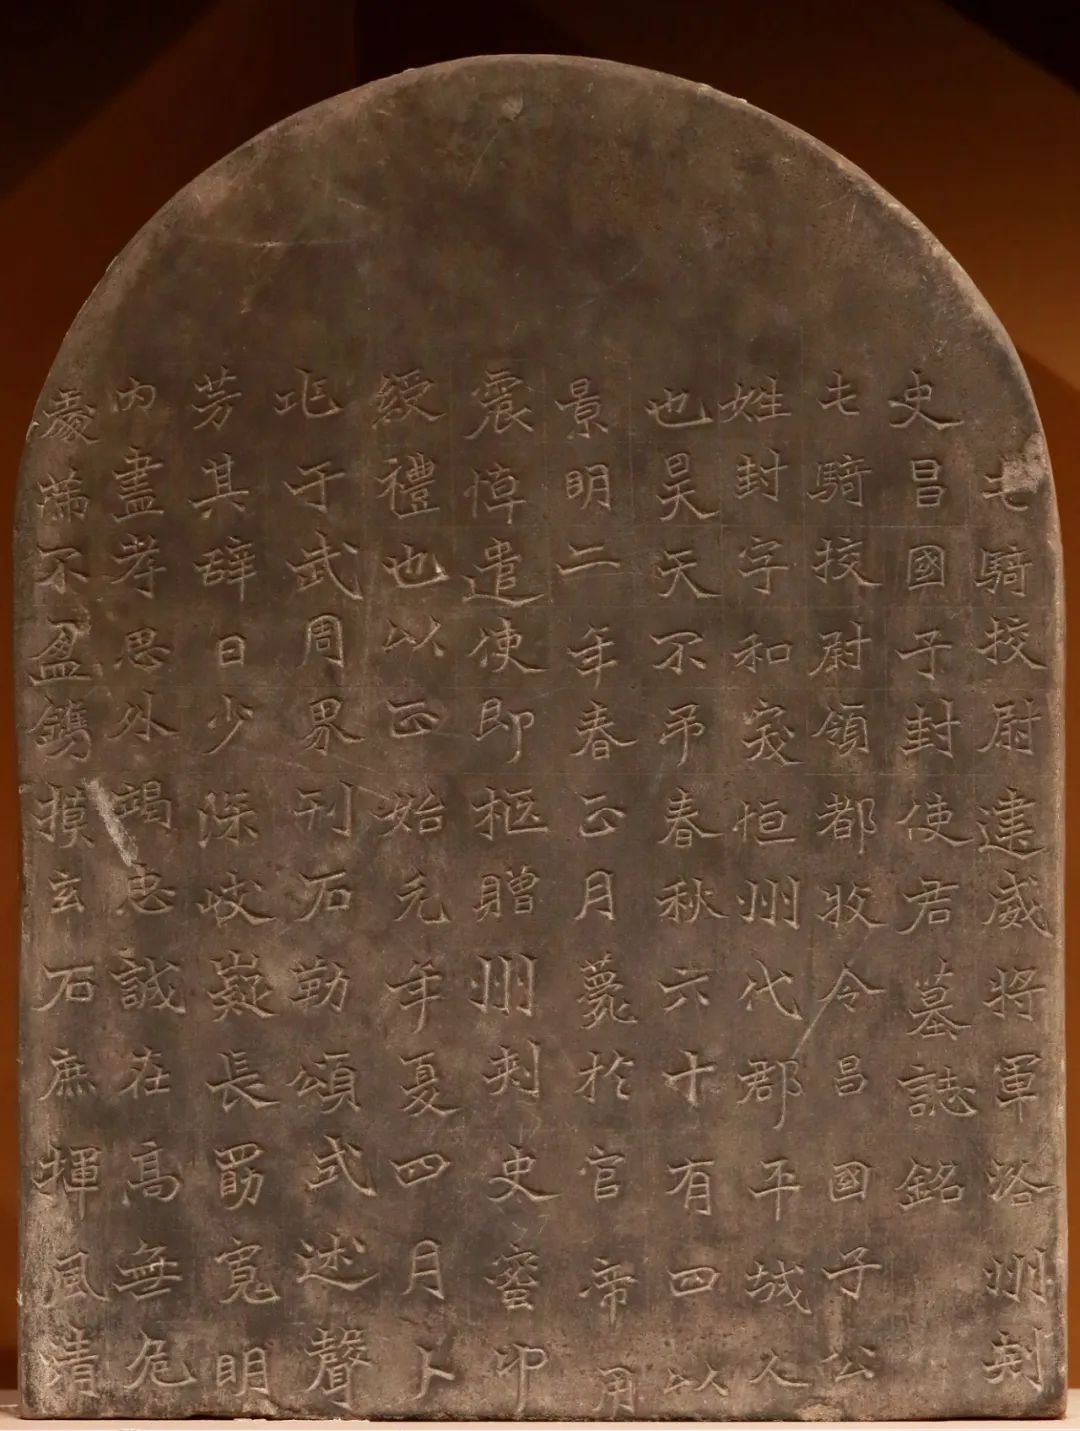 屯騎校尉建威將軍洛州刺
史昌國子封使君墓誌銘
屯騎校尉領都牧令昌國子公
姓封字和突恒州代郡平城人
也昊天不弔春秋六十有四以
景明二年春正月薨於官帝用
震悼遣使即柩贈州刺史蜜印
綬禮也以正始元年夏四月卜
兆于武周界刊石勒頌式述聲
芳其辭曰少深岐嶷長勗寬明
內盡孝思外竭忠誠在高無危
處滿不盈鐫摸玄石庶揮風清